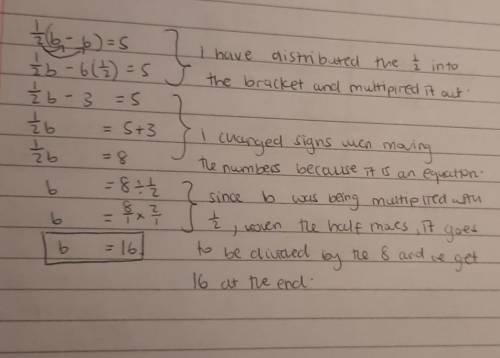 ½(b - 6) = 5
½b - 6(½) = 5
I have distributed the ½ into
the bracket and multiplied it out.
½b - 3 = 5
½b = 5+3
½b = 8
I changed signs when moving
the numbers because it is an equation.
b = 8 ÷ ½
b = 8/1 × 2/1
b = 16
since b was being multiplied with
½, when the half moves, it goes
to be divided by the 8 and we get
16 at the end.